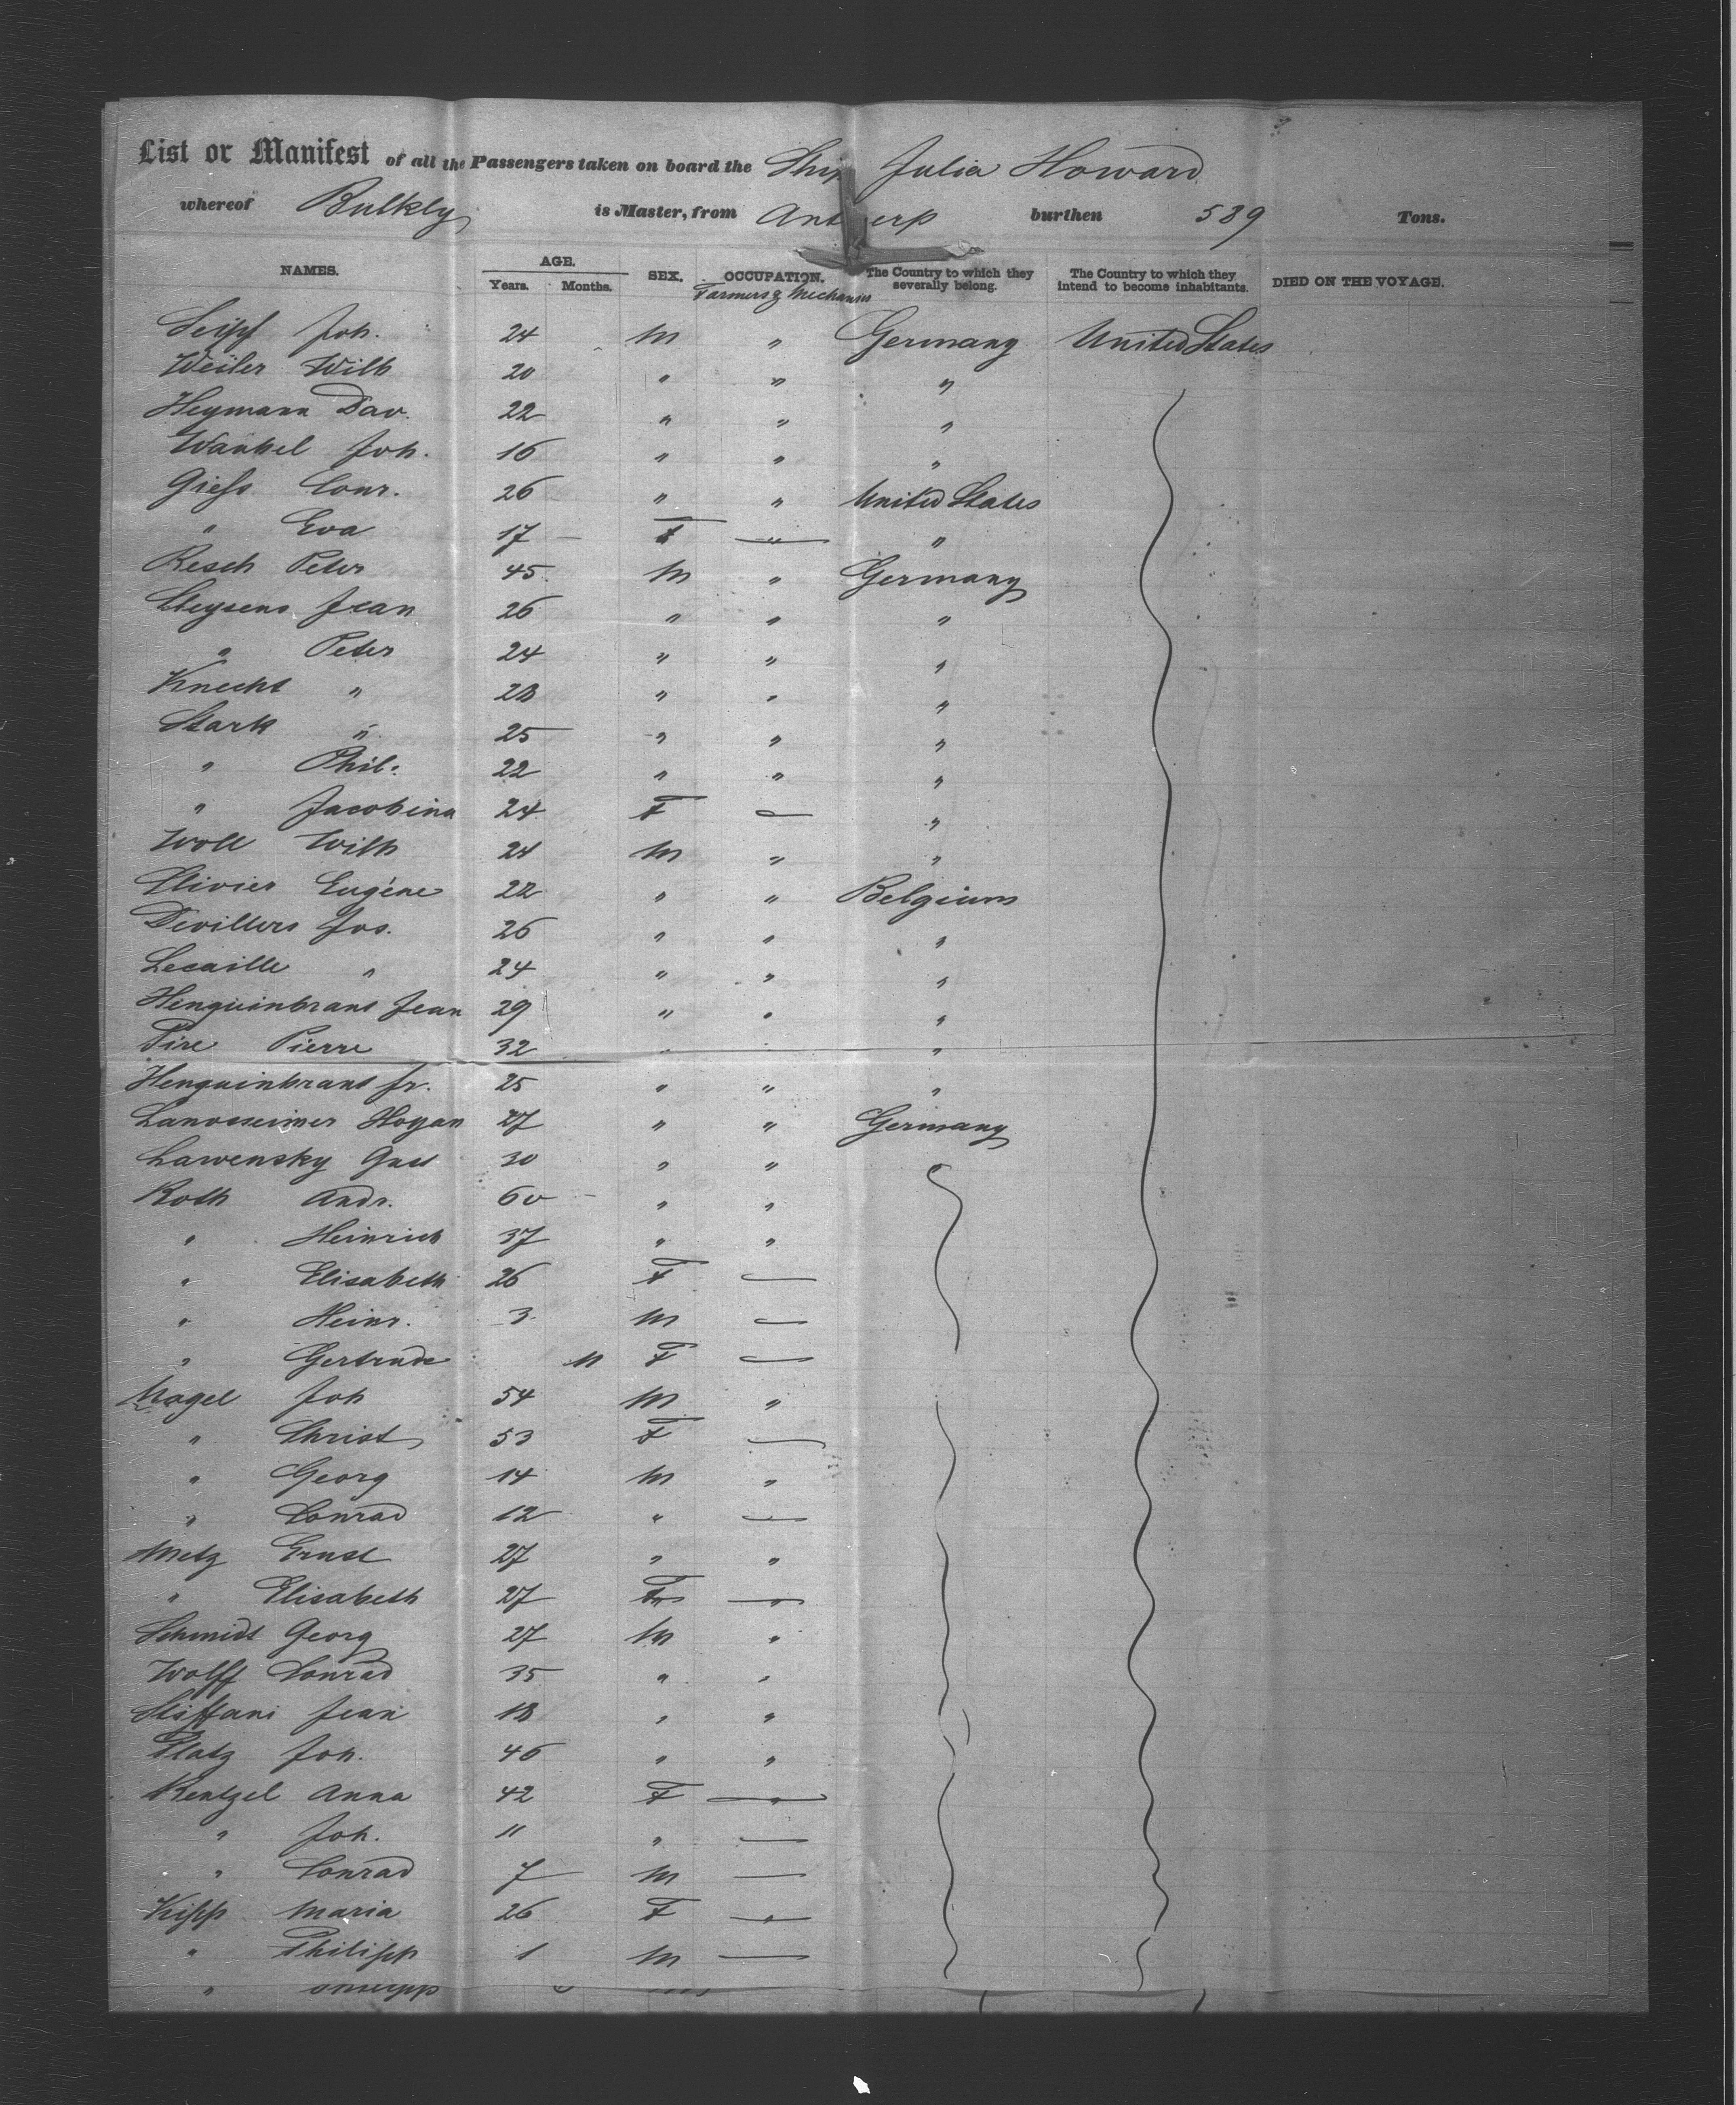 List or Manifest of all the Passengers taken on board the Ship Julia Howard
whereof Bulkly is Master, from Antwerp burthen 589 Tons.
NAMES. AGE. Years. Months. SEX. OCCUPATION. The Country to which they severally belong. The Country to which they intend to become inhabitants. DIED ON THE VOYAGE.
Farmers & Mechanics
Seipf Joh. 24 M " Germany United States
Weiler Wilh 20 " " "
Heymann Dav. 22 " " "
Wankel Joh. 16 " " "
Giess Conr. 26 " " United States
" Eva 17 — F " "
Resch Peter 45 M " Germany
Jean 26 " " "
" Peter 24 " " "
Knecht " 28 " " "
Stark " 25 " " "
" Phil: 22 " " "
" Jacobina 24 F — "
Woll Wilh 24 M " "
Eugéne 22 " " Belgium
Devillers Jos. 26 " " "
Lecaille " 24 " " "
Henquinbrant Jean 29 " " "
Pire Pierre 32 " " "
Henquinbrant fr. 25 " " "
27 " " Germany
Lawensky Gust 30 " "
Roth Andr. 60 — " "
" Heinrich 37 " "
" Elisabeth 26 F —
" Heinr. 3 M —
" Gertrude 11 F —
Nagel Joh 54 M "
" Christ 53 F —
" Georg 14 M "
" Conrad 12 " —
Metz Ernst 27 " "
" Elisabeth 27 F —
Schmidt Georg 27 M "
Wolff Conrad 35 " "
Steffani Jean 18 " "
Platz Joh. 46 " "
Kentzel Anna 42 F —
" Joh. 11 " —
" Conrad 7 M —
Kipp Maria 26 F —
" Philipp 1 M —